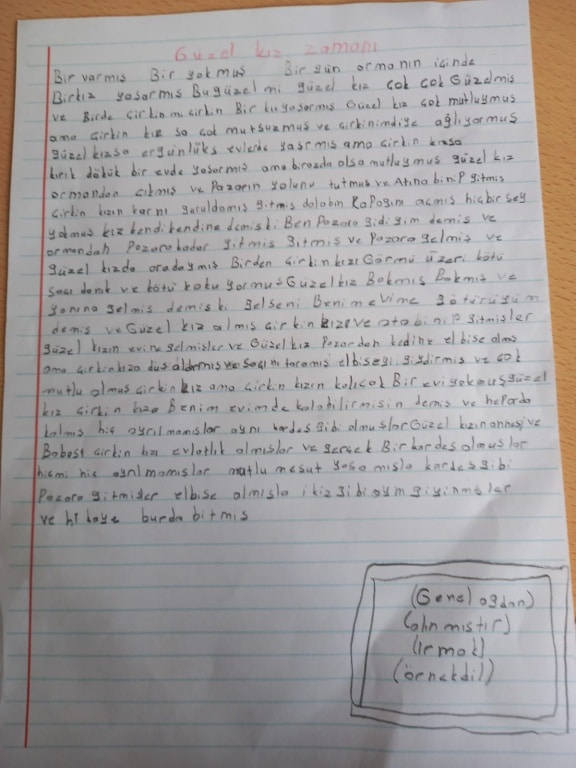 Güzel kız zamanı
Bir varmış Bir yokmuş Bir gün ormanın içinde
Birkız yaşarmış Bu güzel mi güzel kız çok çok Güzelmiş
ve Birde çirkin mi çirkin Bir kız yaşarmış Güzel kız çok mutluymuş
ama çirkin kız sa çok mutsuzmuş ve çirkinimdiye ağlıyormuş
güzel kızsa ergünlüks evlerde yaşarmış ama çirkin kızsa
kırık dökük bir evde yaşarmış ama birazda olsa mutluymuş güzel kız
ormandan çıkmış ve Pazarın yolunu tutmuş ve Atına binip gitmiş
çirkin kızın karnı guruldamış gitmiş dolabın kapağını açmış hiçbir şey
yokmuş kız kendi kendine demişki Ben Pazara gidiyim demiş ve
ormandan Pazara kadar gitmiş gitmiş ve Pazara gelmiş ve
güzel kızda oradaymış Birden çirkin kızı Görmü üzeri kötü
saçı darık ve kötü koku yormuş Güzel kız Bakmış Bakmış ve
yanına gelmiş demiş ki gel seni Benim evime götürüyüm
demiş ve Güzel kız almış çirkin kızı ve ata binip gitmişler
güzel kızın evine gelmişler ve Güzel kız Pazardan kedine elbise almış
ama çirkin kıza duş aldırmış ve saçını taramış elbiseyi giydirmiş ve çok
mutlu olmuş çirkin kız ama çirkin kızın kalıcak Bir evi yokmuş güzel
kız çirkin kıza Benim evimde kalabilirmisin demiş ve heParda
kalmış hiç ayrılmamışlar aynı kardeş gibi olmuşlar Güzel kızın annesi ve
Babası çirkin kızı evlatlık almışlar ve gerçek Bir kardeş olmuşlar
hiçmi hiç ayrılmamışlar mutlu mesut yaşamışla kardeş gibi
Pazara gitmişler elbise almışla ikiz gibi aynı giyinmişler
ve hikaye burda bitmiş
(Genel ağdan)
(alınmıştır)
(Irmak)
(örnekdil)